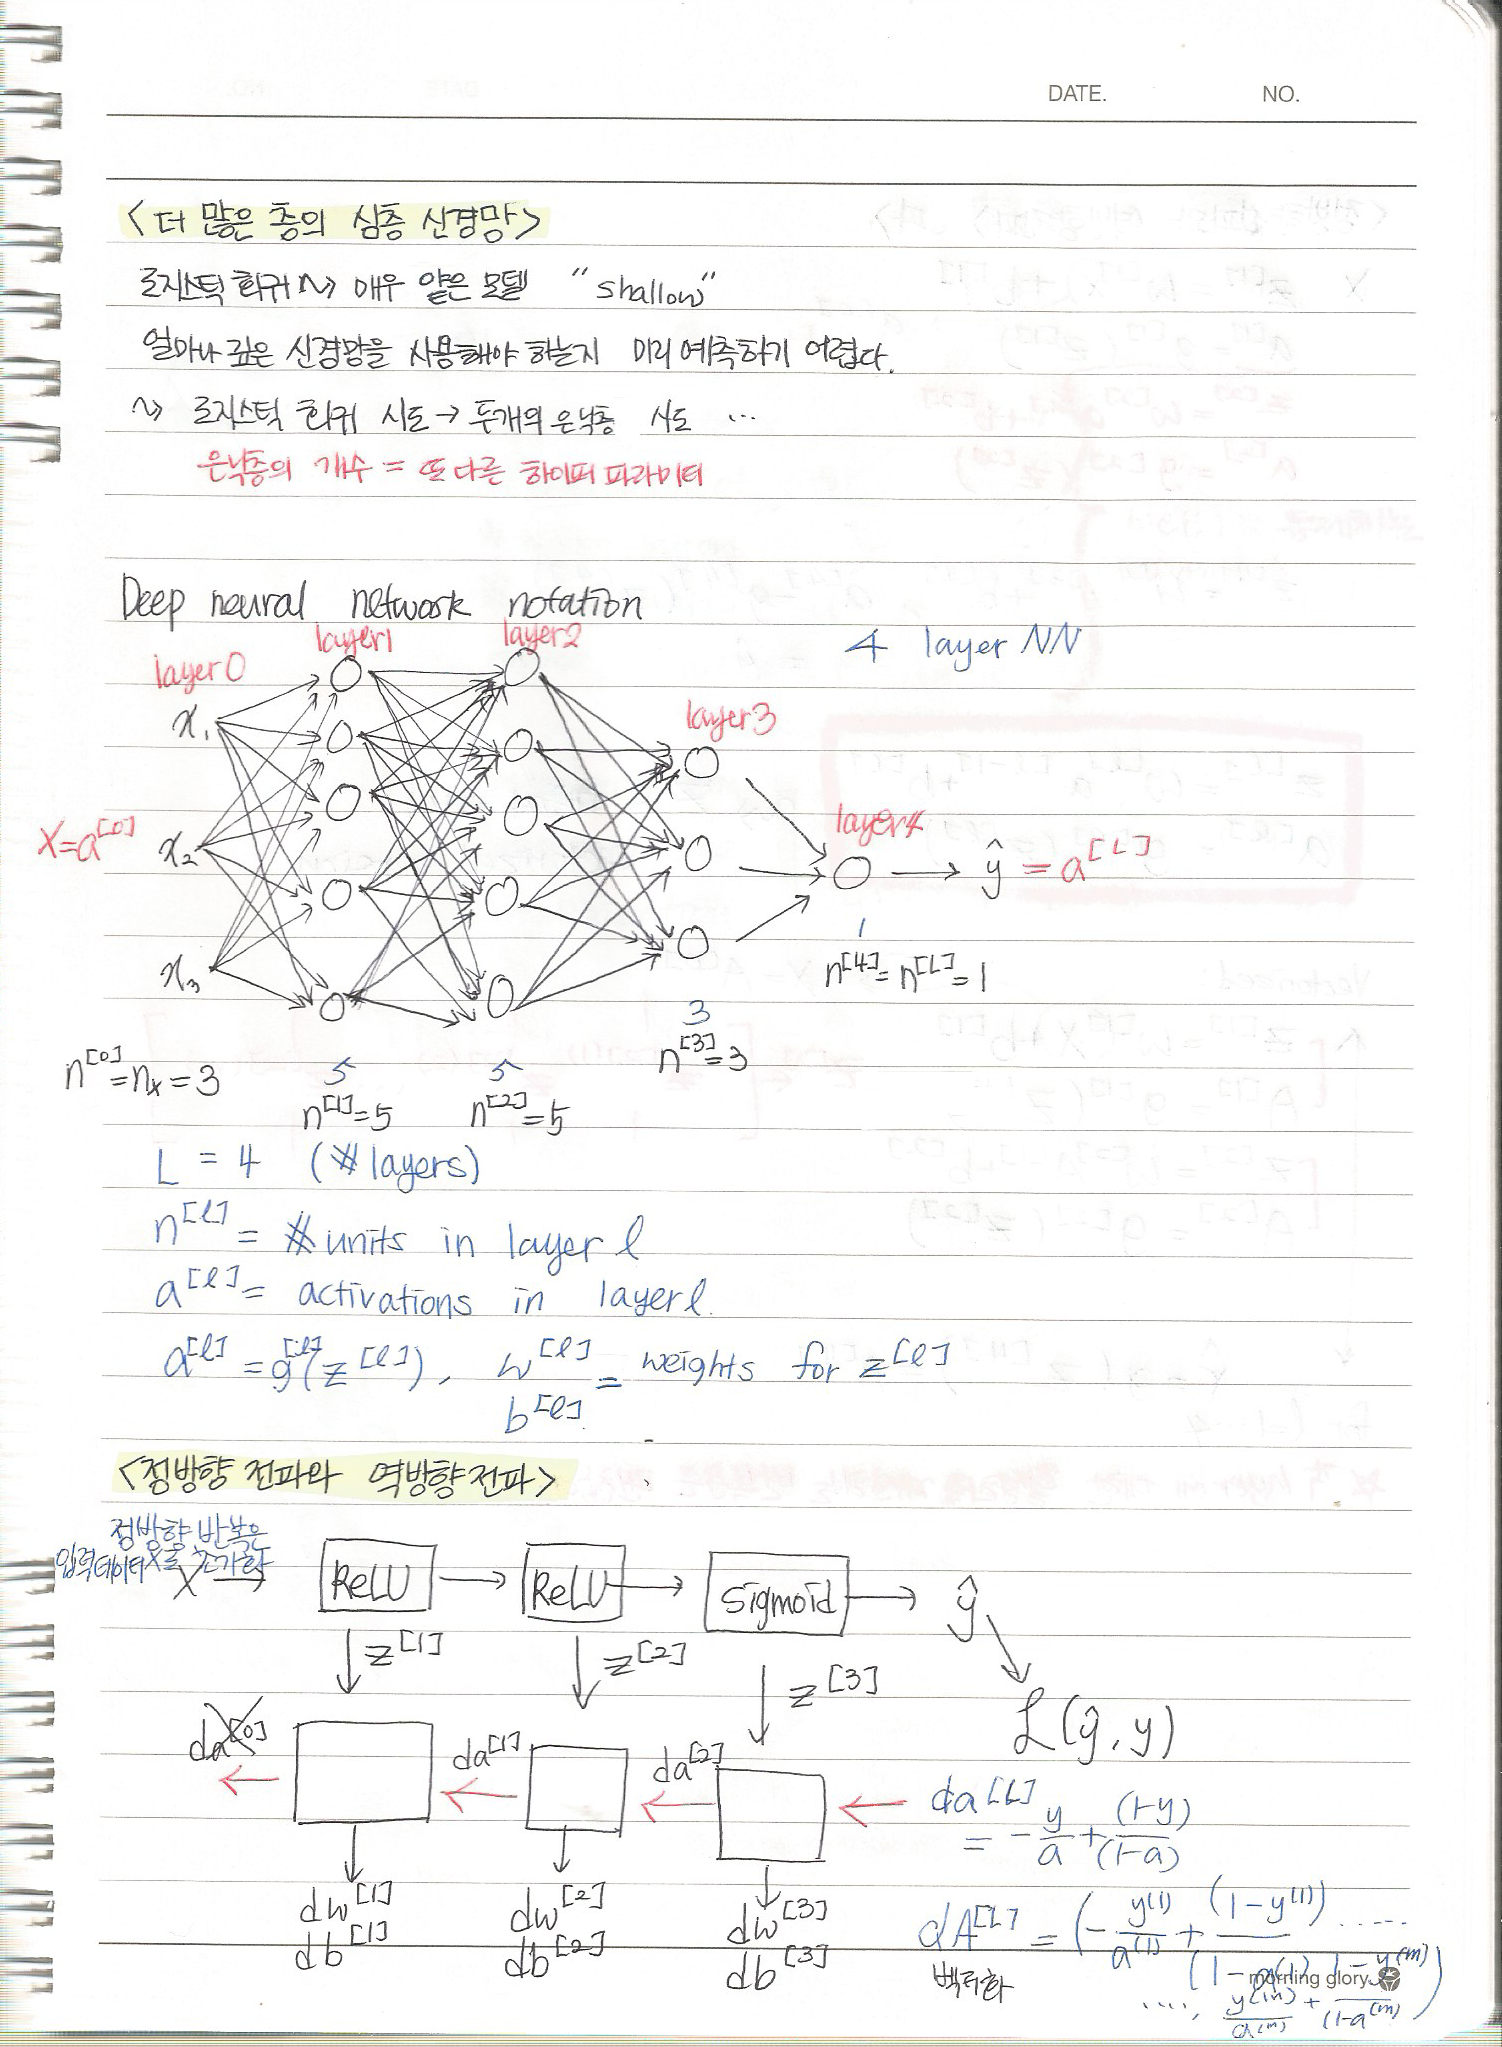 DATE. NO.
<더 많은 층의 심층 신경망>
로지스틱 회귀 ~> 매우 얕은 모델 "shallow"
얼마나 깊은 신경망을 사용해야 하는지 미리 예측하기 어렵다.
~> 로지스틱 회귀 시도 → 두개의 은닉층 시도 ...
은닉층의 개수 = 또 다른 하이퍼 파라미터
Deep neural network notation
4 layer NN
layer0 layer1 layer2 layer3 layer4
x₁
x₂
x₃
X=a^[0]
ŷ = a^[L]
1
n^[4]=n^[L]=1
3
n^[3]=3
n^[0]=nx=3
5
n^[1]=5
5
n^[2]=5
L = 4 (# layers)
n^[l] = # units in layer l
a^[l] = activations in layer l.
a^[l] = g^[l](z^[l]), w^[l] = weights for z^[l]
b^[l].
<정방향 전파와 역방향 전파>
정방향 반복은
입력데이터 X로 초기화
X → ReLU → ReLU → Sigmoid → ŷ
z^[1] z^[2] z^[3]
L(ŷ, y)
da^[0] da^[1] da^[2]
da^[L]
= -y/a + (1-y)/(1-a)
dw^[1] dw^[2] dw^[3]
db^[1] db^[2] db^[3]
dA^[L] = (-y^(1)/a^(1) + (1-y^(1))/(1-a^(1)) .....
벡터화
...., y^(m)/a^(m) + 1-y^(m)/(1-a^(m))
morning glory